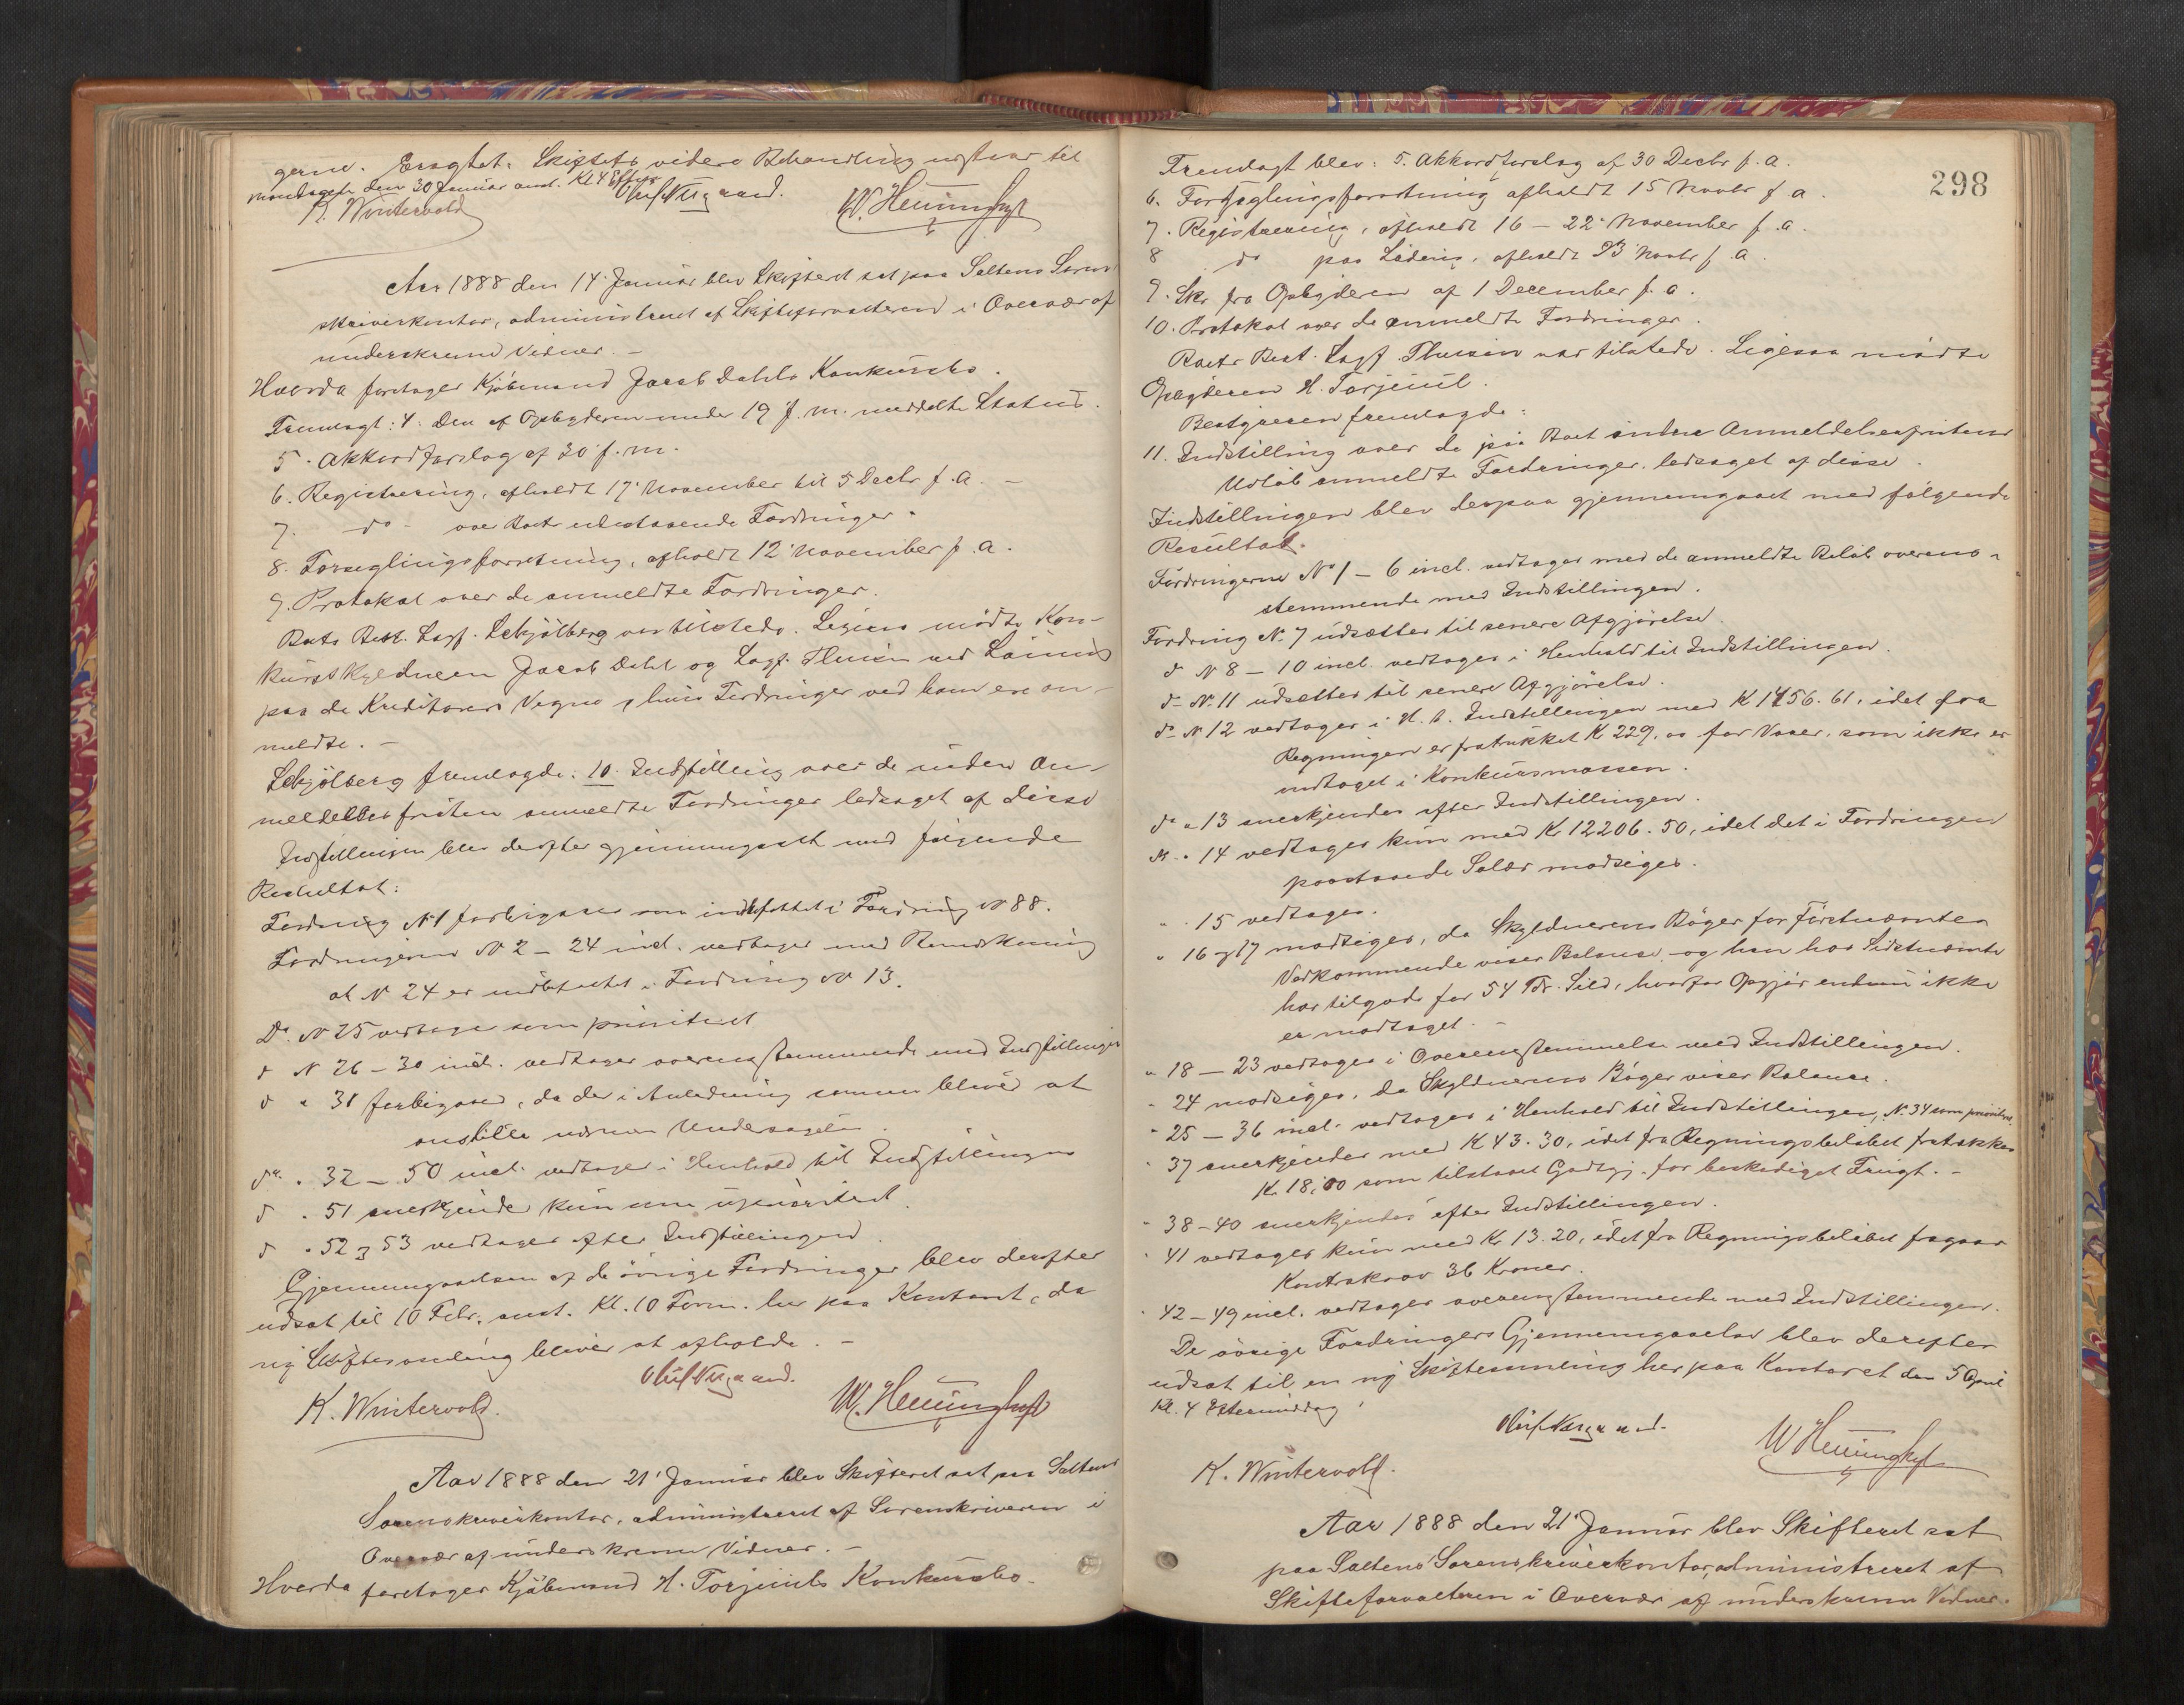 gerne. Eragtet: Skiftets videre Behandling udstaar til
Mandagen den 30 Januar anst. Kl 4 Efterm
K. Wintervold Oluf Nergaard. W. Henninghuf
Aar 1888 den 14' Januar blev Skifteret sat paa Saltens Soren-
skriverkontor, administreret af Skifteforvalteren i Overvær af
underskrevne Vidner. -
Hvorda foretoges Kjøbmand Jacob Dahls Konkursbo.
Fremlagt: 4. Den af Opbyderen under 19 f. m. meddelte Status.
5. Akkordforslag af 30 f. m.
6. Registrering, afholdt 17' November til 5 Decbr f. a. -
7. do - over Boets udestaaende Fordringer.
8. Forseglingsforretning, afholdt 12' November f. a.
9. Protokol over de anmeldte Fordringer.
Boets Best. Sagf. Schjølberg var tilstede. Ligesaa mødte Kon-
kursskyldneren Jacob Dahl og Sagf. Thesen ved
paa de Kreditorers Vegne, hvis Fordringer ved ham ere an-
meldte. -
Schjølberg fremlagde: 10. Indstilling over de inden An-
meldelsesfristen anmeldte Fordringer ledsaget af disse
Indstillingen blev derefter gjennemgaaet med følgende
Resultat:
Fordring No 1 forbigaaes som indbefattet i Fordring No 88.
Fordringerne No 2 - 24 incl. vedtages med Bemærkning
at No 24 er indbefattet i Fordring No 13.
Do. No 25 vedtages som prioriteret
d No 26 - 30 incl. vedtages overensstemmende med Indstillingen
d " 31 forbigaaes, da der i Anledning samme bliver at
anstille nærmere Undersøgelse.
do " 32 - 50 incl. vedtages i Henhold til Indstillingen
d " 51 anerkjendes kun som uprioriteret.
d " 52 og 53 vedtages efter Indstillingen.
Gjennemgaaelsen af de øvrige Fordringer blev derefter
udsat til 10 Febr. anst. Kl. 10 Form. her paa Kontoret, da
ny Skiftesamling bliver at afholde. -
K. Wintervold. Oluf Nergaard. W. Henninghuf
Aar 1888 den 21' Januar blev Skifteret sat paa Saltens
Sorenskriverkontor, administreret af Sorenskriveren i
Overvær af underskrevne Vidner. -
Hvorda foretoges Kjøbmand H. Torjeuls Konkursbo.
298
Fremlagt blev: 5. Akkordforslag af 30 Decbr f. a.
6. Forseglingsforretning afholdt 15 Novbr f. a.
7. Registrering, afholdt 16 - 22' November f. a.
8 do paa Løding, afholdt 23 Novbr f. a.
9. Skr. fra Opbyderen af 1 December f. a.
10. Protokol over de anmeldte Fordringer.
Boets Best. Sagf. Thesen var tilstede. Ligesaa mødte
Opbyderen H. Torjeul.
Bestyreren fremlagde:
11. Indstilling over de i Boet inden Anmeldelsesfristens
Udløb anmeldte Fordringer, ledsaget af disse.
Indstillingen blev derpaa gjennemgaaet med følgende
Resultat.
Fordringerne No 1 - 6 incl. vedtages med de anmeldte Beløb overens-
stemmende med Indstillingen.
Fordring No. 7 udsættes til senere Afgjørelse.
d No 8 - 10 incl. vedtages i Henhold til Indstillingen.
d- No. 11 udsættes til senere Afgjørelse.
do No 12 vedtages i H. t. Indstillingen med K 1456. 61, idet fra
Regningen er fratrukket K 229. oo for Varer, som ikke er
indtaget i Konkursmassen.
do " 13 anerkjendes efter Indstillingen.
No. " 14 vedtages kun med Kr 12206. 50, idet det i Fordringen
paastaaede Salær modsiges.
" " 15 vedtages.
" 16 og 17 modsiges, da Skyldnerens Bøger for Førstnævntes
Vedkommende viser Balance, og han hos Sidstnævnte
har tilgode for 54 Tdr. Sild, hvorfor Opgjør endnu ikke
er modtaget. -
" 18 - 23 vedtages i Overensstemmelse med Indstillingen.
" 24 modsiges, da Skyldnerens Bøger viser Balance.
" 25 - 36 incl. vedtages i Henhold til Indstillingen, No. 34 som prioritert.
" 37 anerkjendes med K 43. 30, idet fra Regningsbeløbet fratrækkes
K. 18,00 som tilstaaet Godtgj. for beskadiget Frugt. -
" 38 - 40 anerkjendes efter Indstillingen.
" 41 vedtages kun med Kr. 13. 20, idet fra Regningsbeløbet fragaar
Kontrakrav 36 Kroner.
" 42 - 49 incl. vedtages overensstemmende med Indstillingen.
De øvrige Fordringers Gjennemgaaelse blev derefter
udsat til en ny Skiftesamling her paa Kontoret den 5 April
Kl. 4 Eftermiddag.
K. Wintervold. Oluf Nergaard. W Henninghuf
Aar 1888 den 21' Januar blev Skifteret sat
paa Saltens Sorenskriverkontor, administreret af
Skifteforvalteren i Overvær af underskrevne Vidner.